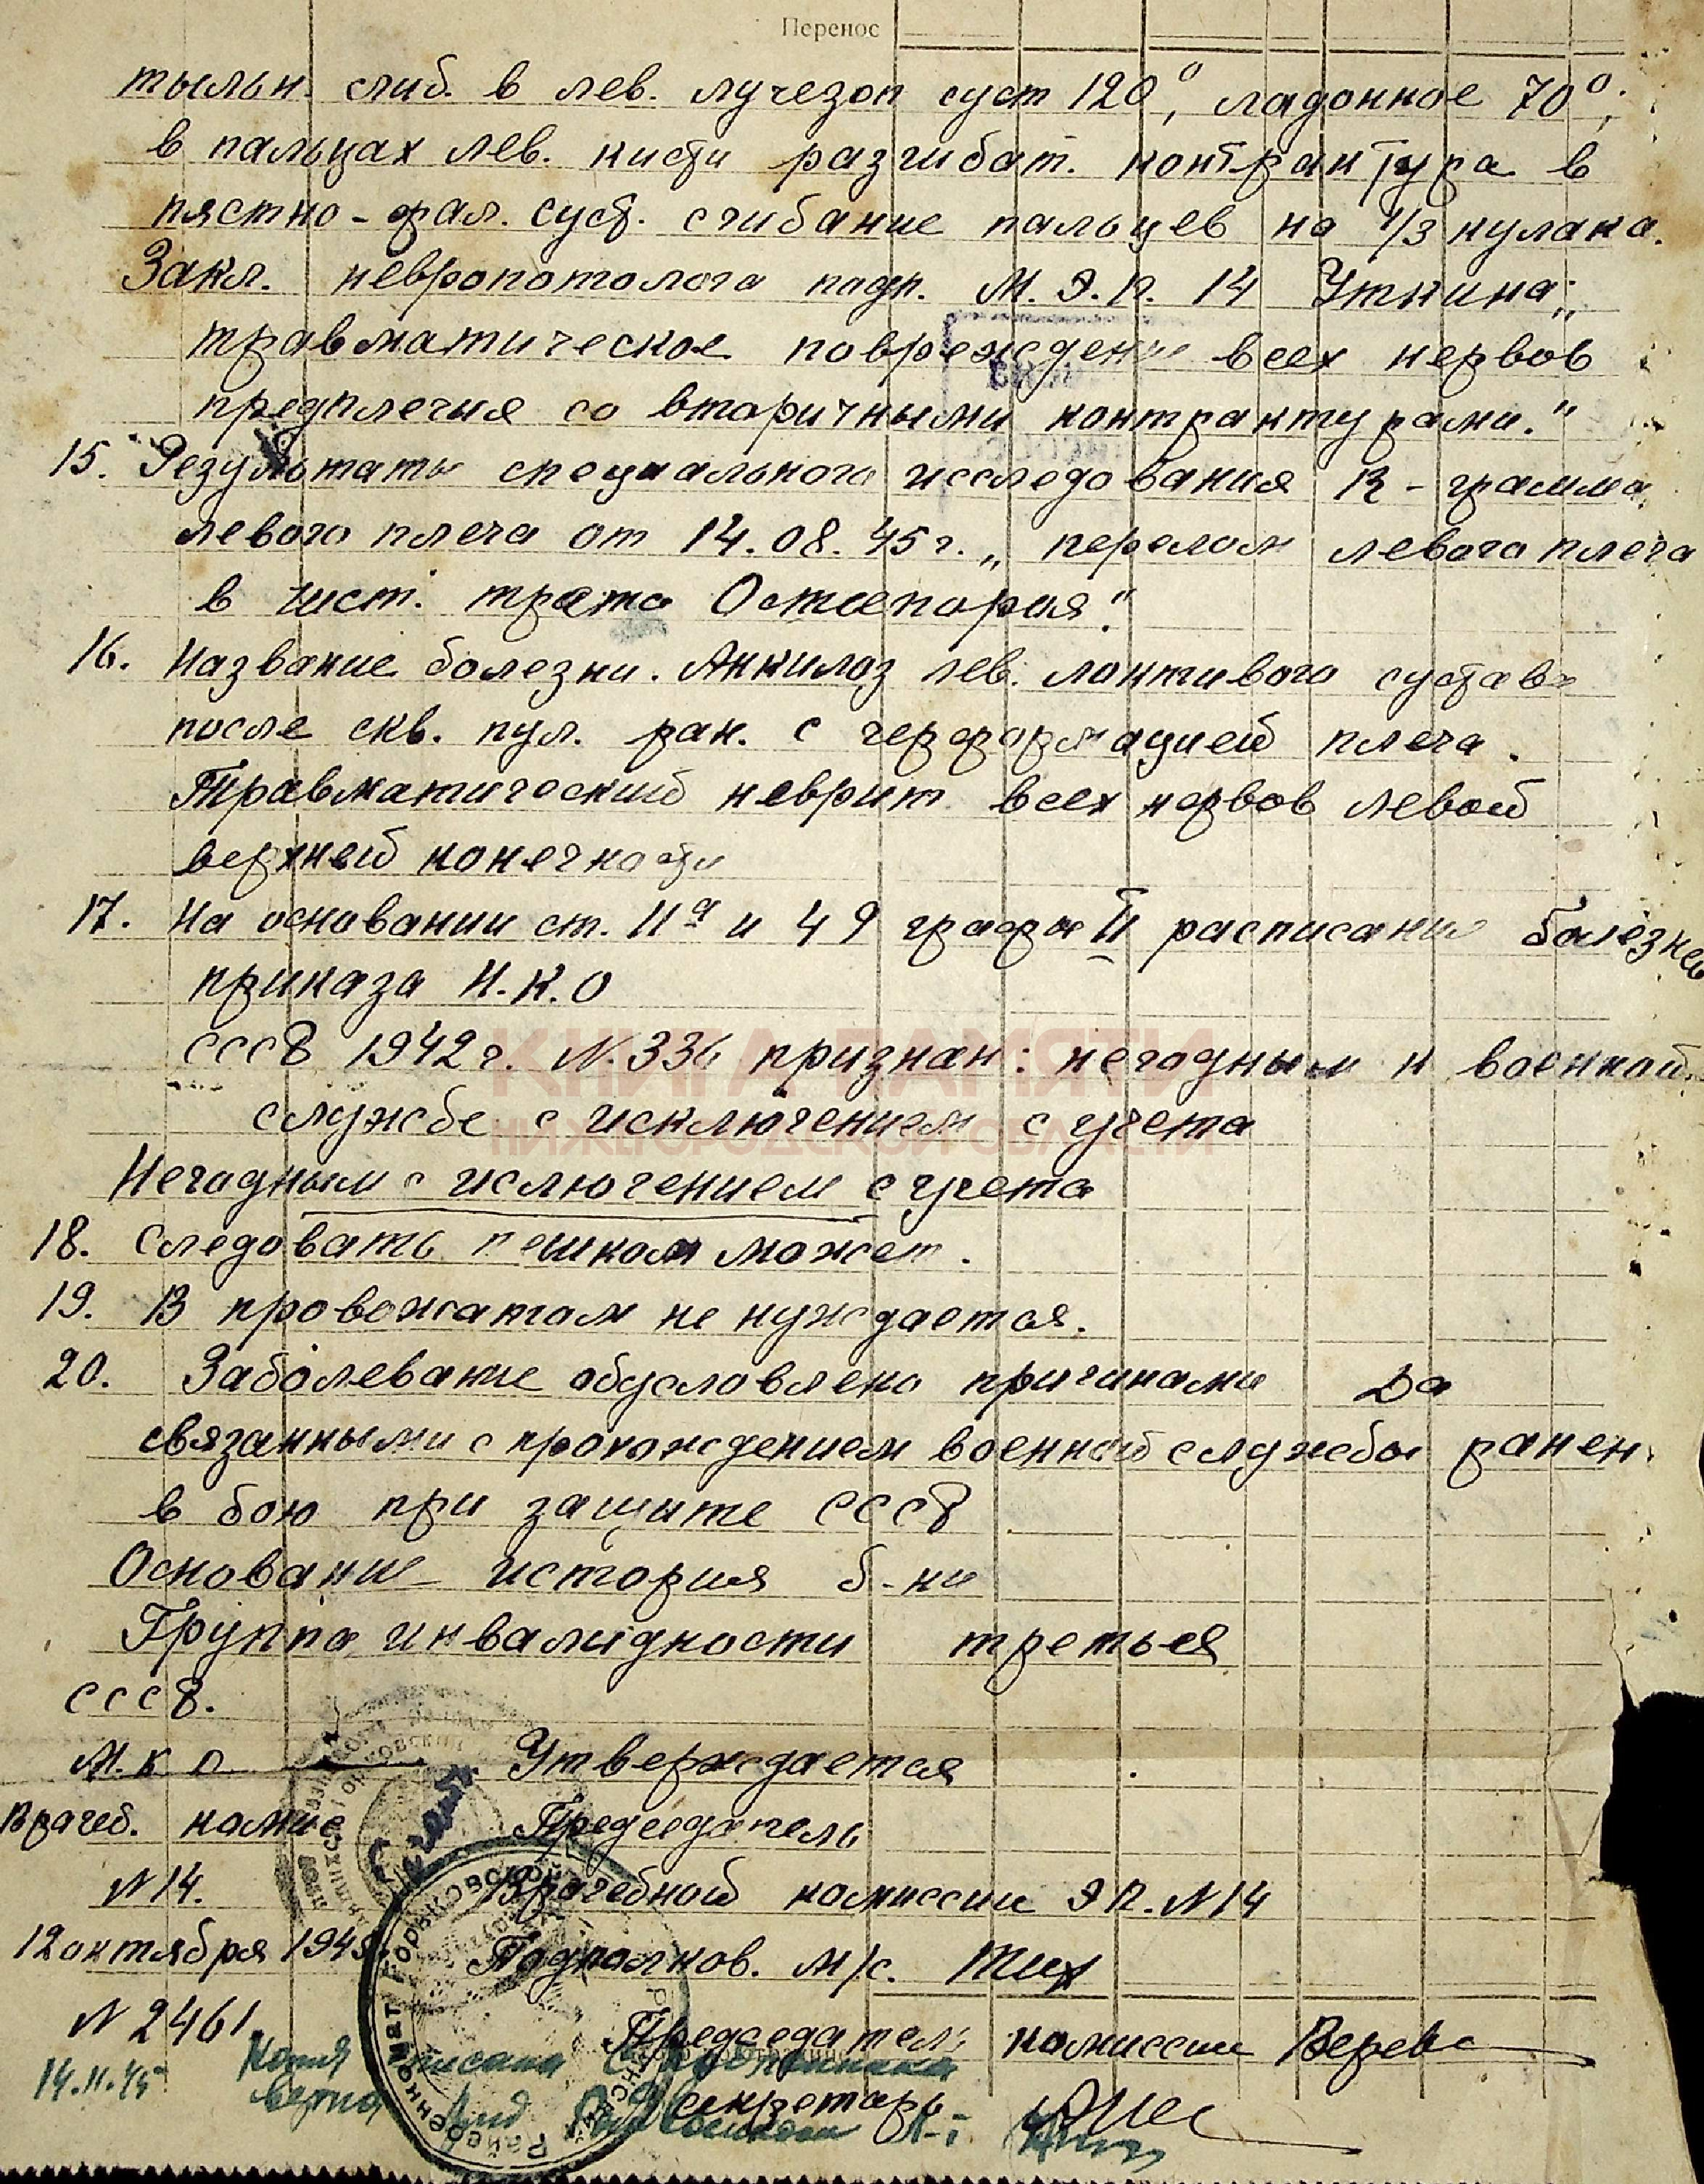 Перенос
тыльн. сгиб. в лев. лучезап суст 120°, ладонное 70°;
в пальцах лев. кисти разгибат. контрактура в
пястно-фал. суст. сгибание пальцев на 1/3 кулака.
Закл. невропотолога подп. М.Э.П. 14 Уткина „
травматическое поврежден всех нервов
предплечия со вторичными контрактурами."
15. Результаты специального исследования R-грамма
левого плеча от 14.08.45г. „перелом левого плеча
в чист. трата Остеопороя."
16. Название болезни. Анкилоз лев. локтивого сустава
после скв. пул. ран. с черформацией плеча.
Травматический неврит всех нервов левой
верхней конечности
17. На основании ст. 11а и 49 графы II расписания болезней
приказа Н.К.О
СССР 1942г. N. 336 признан: негодным к военной
службе с исключением с учета
КНИГА ПАМЯТИ
НИЖЕГОРОДСКОЙ ОБЛАСТИ
Негодным с ислючением с учета
18. Следовать пешком может.
19. В провожатом не нуждается.
20. Заболевание обусловлено причинами Да
связанными с прохождением военной службы ранен.
в бою при защите СССР
Основание история б-ни
Группа инвалидности третья
СССР.
Н.К.О Утверждается
Врачеб. комис Председатель
N 14. Врачебной комиссии ЭП. N14
12 октября 1945 Подполков. м/с. Тих
N 2461 Председатель комиссии Верев
14.11.45 Копия писана
верна секретарь